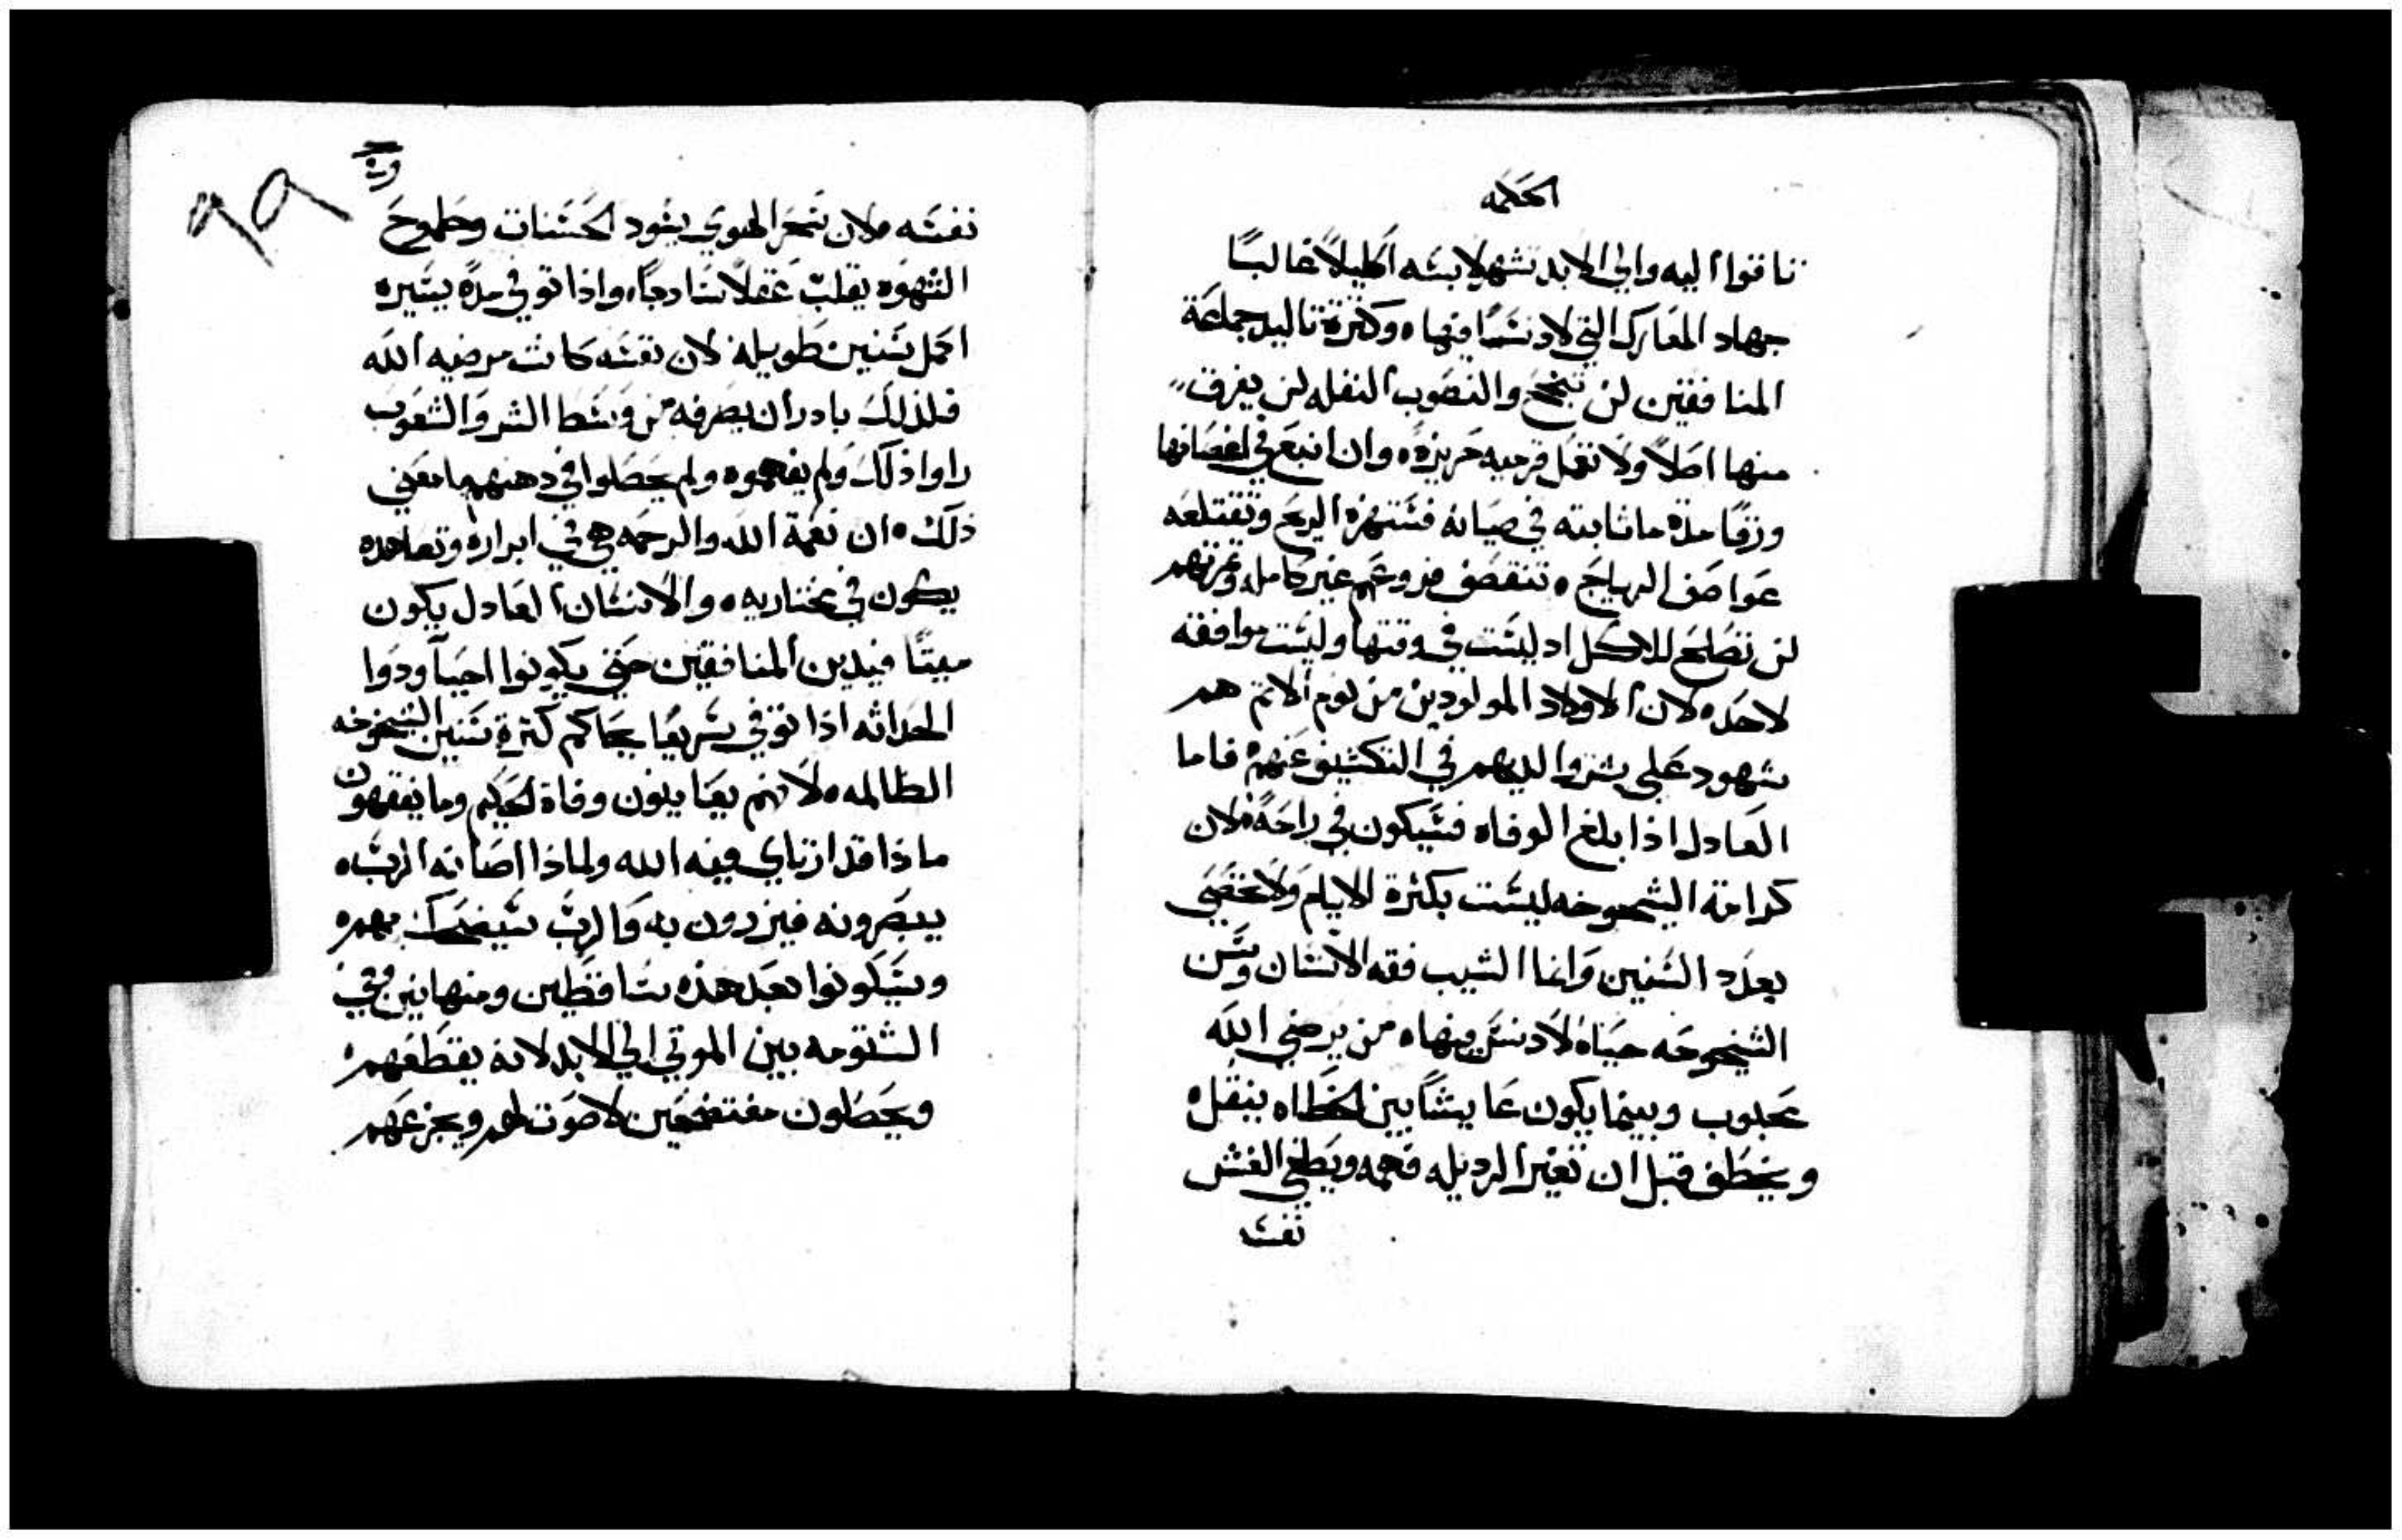 الحكمه
تاقوا اليه والي الابد تشهر لابسه اكليلاً غالبًا
جهاد المعارك التي لا دنسًا فيها ه وكثرة تاليد جماعة
المنافقين لن تنجح والنصوب النفله لن يعرق
منها اصلاً ولا تفعل قرميه حريزه ه وان انبع في اغصانها
ورقًا مدة ما ثابته في صيانه فستهزه الريح وتقتلعه
عواصف الرياح ه تنقصف فروعهم غير كامله وثمرتهم
لن تصلح للاكل اد ليست في وقتها وليست موافقه
لاحد ه لان الاولاد المولودين من نوم الاثم هم
شهود على شر والديهم في التكشيف عنهم ه فاما
العادل اذا بلغ الوفاه فسيكون في راحة ه لان
كرامة الشيخوخه ليست بكثرة الايام ولا تحصي
بعدد السنين وانما الشيب فقه الانسان وسن
الشيخوخه حياه لا دنس فيها ه من يرضي الله
محبوب وبينما يكون عايشًا بين الخطاه ينقله
ويخطف قبل ان تغير الرديله فهمه ويطغي الغش
نفسه
نفسه ه لان سحر الهوي يسود الحسنات وطموح
الشهوه يقلب عقلاً سادجًا ه واذا توفي مدة يسيره
اكمل سنين طويله لان نفسه كانت مرضيه الله
فلذلك بادر ان يصرفه من وسط الشر والشعوب
راوا ذلك ولم يفهموه ولم يحصلوا في دهنهم ما معني
ذلك ه ان نعمة الله والرحمه هي في ابراره وتعاهده
يكون في مختاريه ه والانسان العادل يكون
ميتًا فيدين المنافقين حتي يكونوا احيآ ودوا
الحداثه اذا توفي سريعًا يحاكم كثرة سنين الشيخوخه
الظالمه ه لانهم يعاينون وفاة الحكيم وما يفقهون
ماذا قد ارتاي فيه الله ولماذا اصانه الرب ه
يبصرونه فيزدرون به والرب سيضحك بهم ه
وسيكونوا بعد هذه ساقطين ومنهانين في
الشتومه بين الموتي الي الابد لانه يقتطعهم ه
ويحصلون مفتضحين لا صوت لهم ويجزعهم